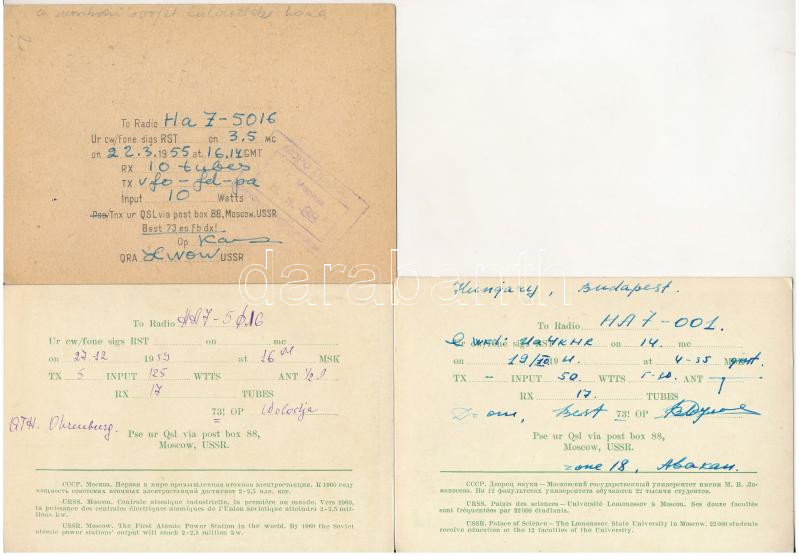 To Radio Ha 7-5016
Ur cw/fone sigs RST on 3.5 mc
on 22.3.1955 at 16.14 GMT
RX 10 tubes
TX vfo-fd-pa
Input 10 Watts
Pse/Tnx ur QSL via post box 88, Moscow, USSR
Best 73 es fb dx!
Op
QRA Lwow USSR
88
darabanth
To Radio HA7-5016
Ur cw/fone sigs RST on mc
on 27-12 1959 at 16 MSK
TX 5 INPUT 125 WTTS ANT
RX 17 TUBES
73! OP Wolodja
QTH. Ohrenburg.
Pse ur Qsl via post box 88,
Moscow, USSR.
СССР. Москва. Первая в мире промышленная атомная электростанция. К 1960 году
мощность советских атомных электростанций достигнет 2-2,5 млн. квт.
URSS. Moscou. Centrale atomique industrielle, la première au monde. Vers 1960,
la puissance des centrales électriques atomiques de l'Union soviétique atteindra 2-2,5 mil-
lions kw.
USSR. Moscow. The First Atomic Power Station in the world. By 1960 the Soviet
atomic power stations' output will reach 2-2,5 million kw.
Hungary, Budapest.
To Radio HA7-001.
Ur cw/fone sigs RST on 14. mc
on 19 at 4-35
TX - INPUT 50. WTTS ANT
RX 17. TUBES
Dr om, Best 73! OP
Pse ur Qsl via post box 88,
Moscow, USSR.
zone 18, Абакан.
СССР. Дворец науки – Московский государственный университет имени М. В. Ло-
моносова. На 12 факультетах университета обучаются 22 тысячи студентов.
URSS. Palais des sciences – Université Lomonossov à Moscou. Ses douze facultés
sont fréquentées par 22 000 étudiants.
USSR. Palace of Science – The Lomonosov State University in Moscow. 22 000 students
receive education at the 12 faculties of the University.